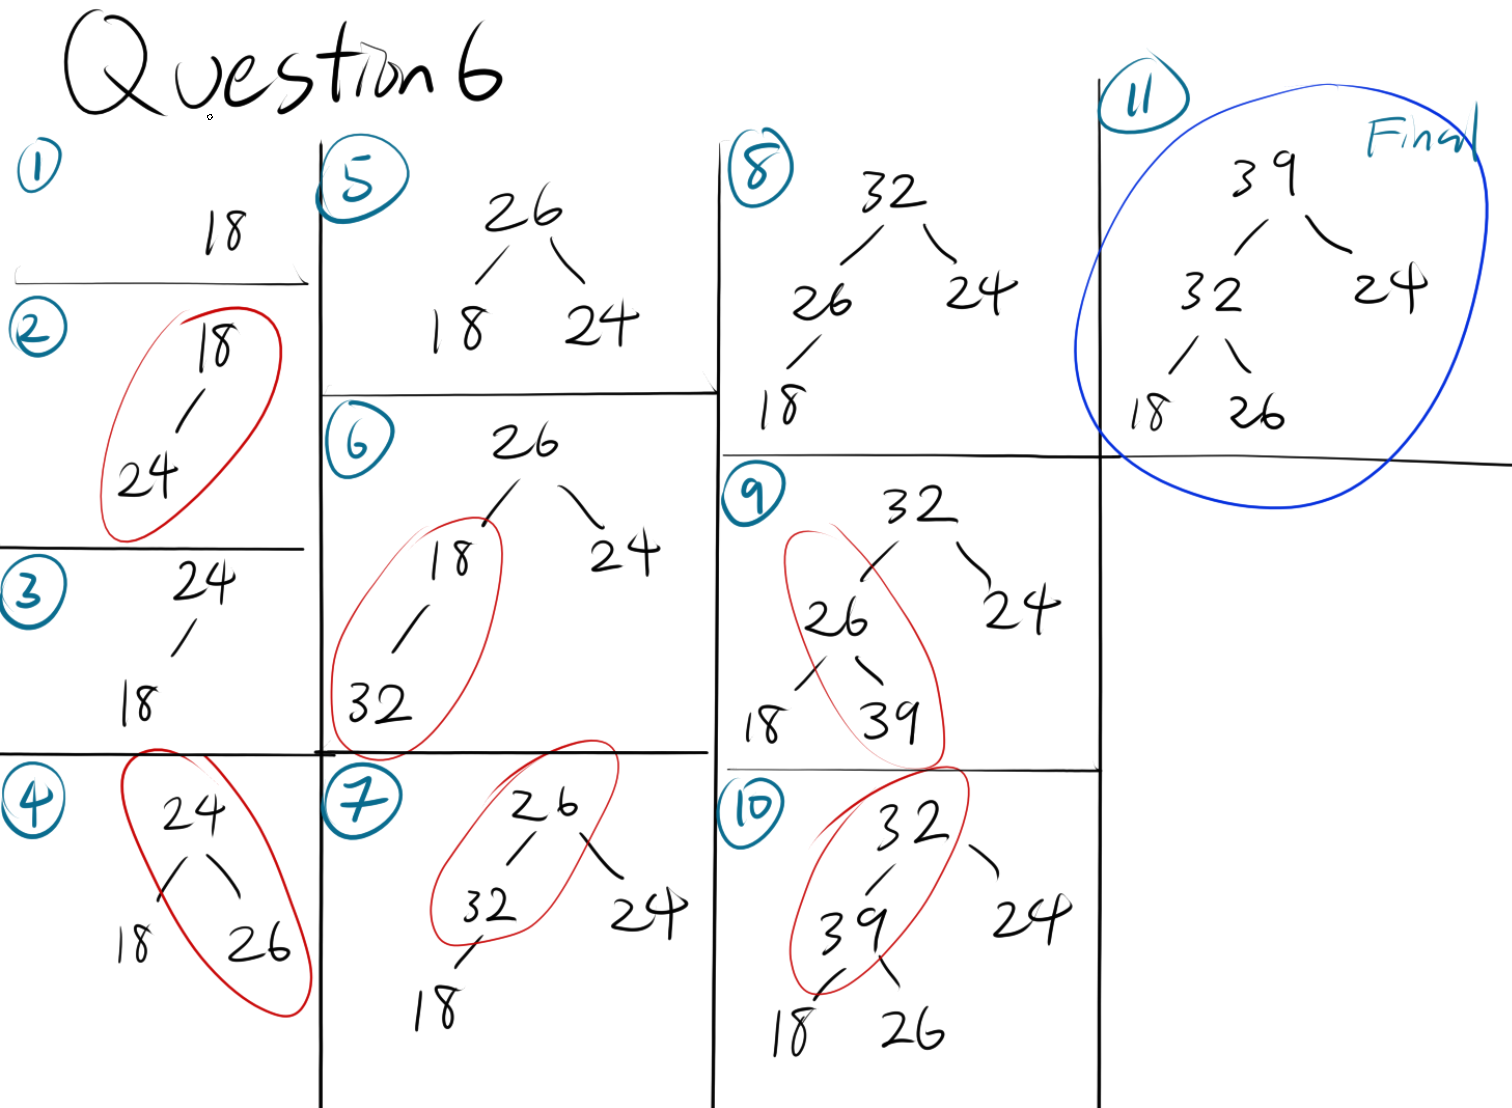 Question 6
1
18
2
18
24
3
24
18
4
24
18 26
5
26
18 24
6
26
18 24
32
7
26
32 24
18
8
32
26 24
18
9
32
26 24
18 39
10
32
39 24
18 26
11
Final
39
32 24
18 26